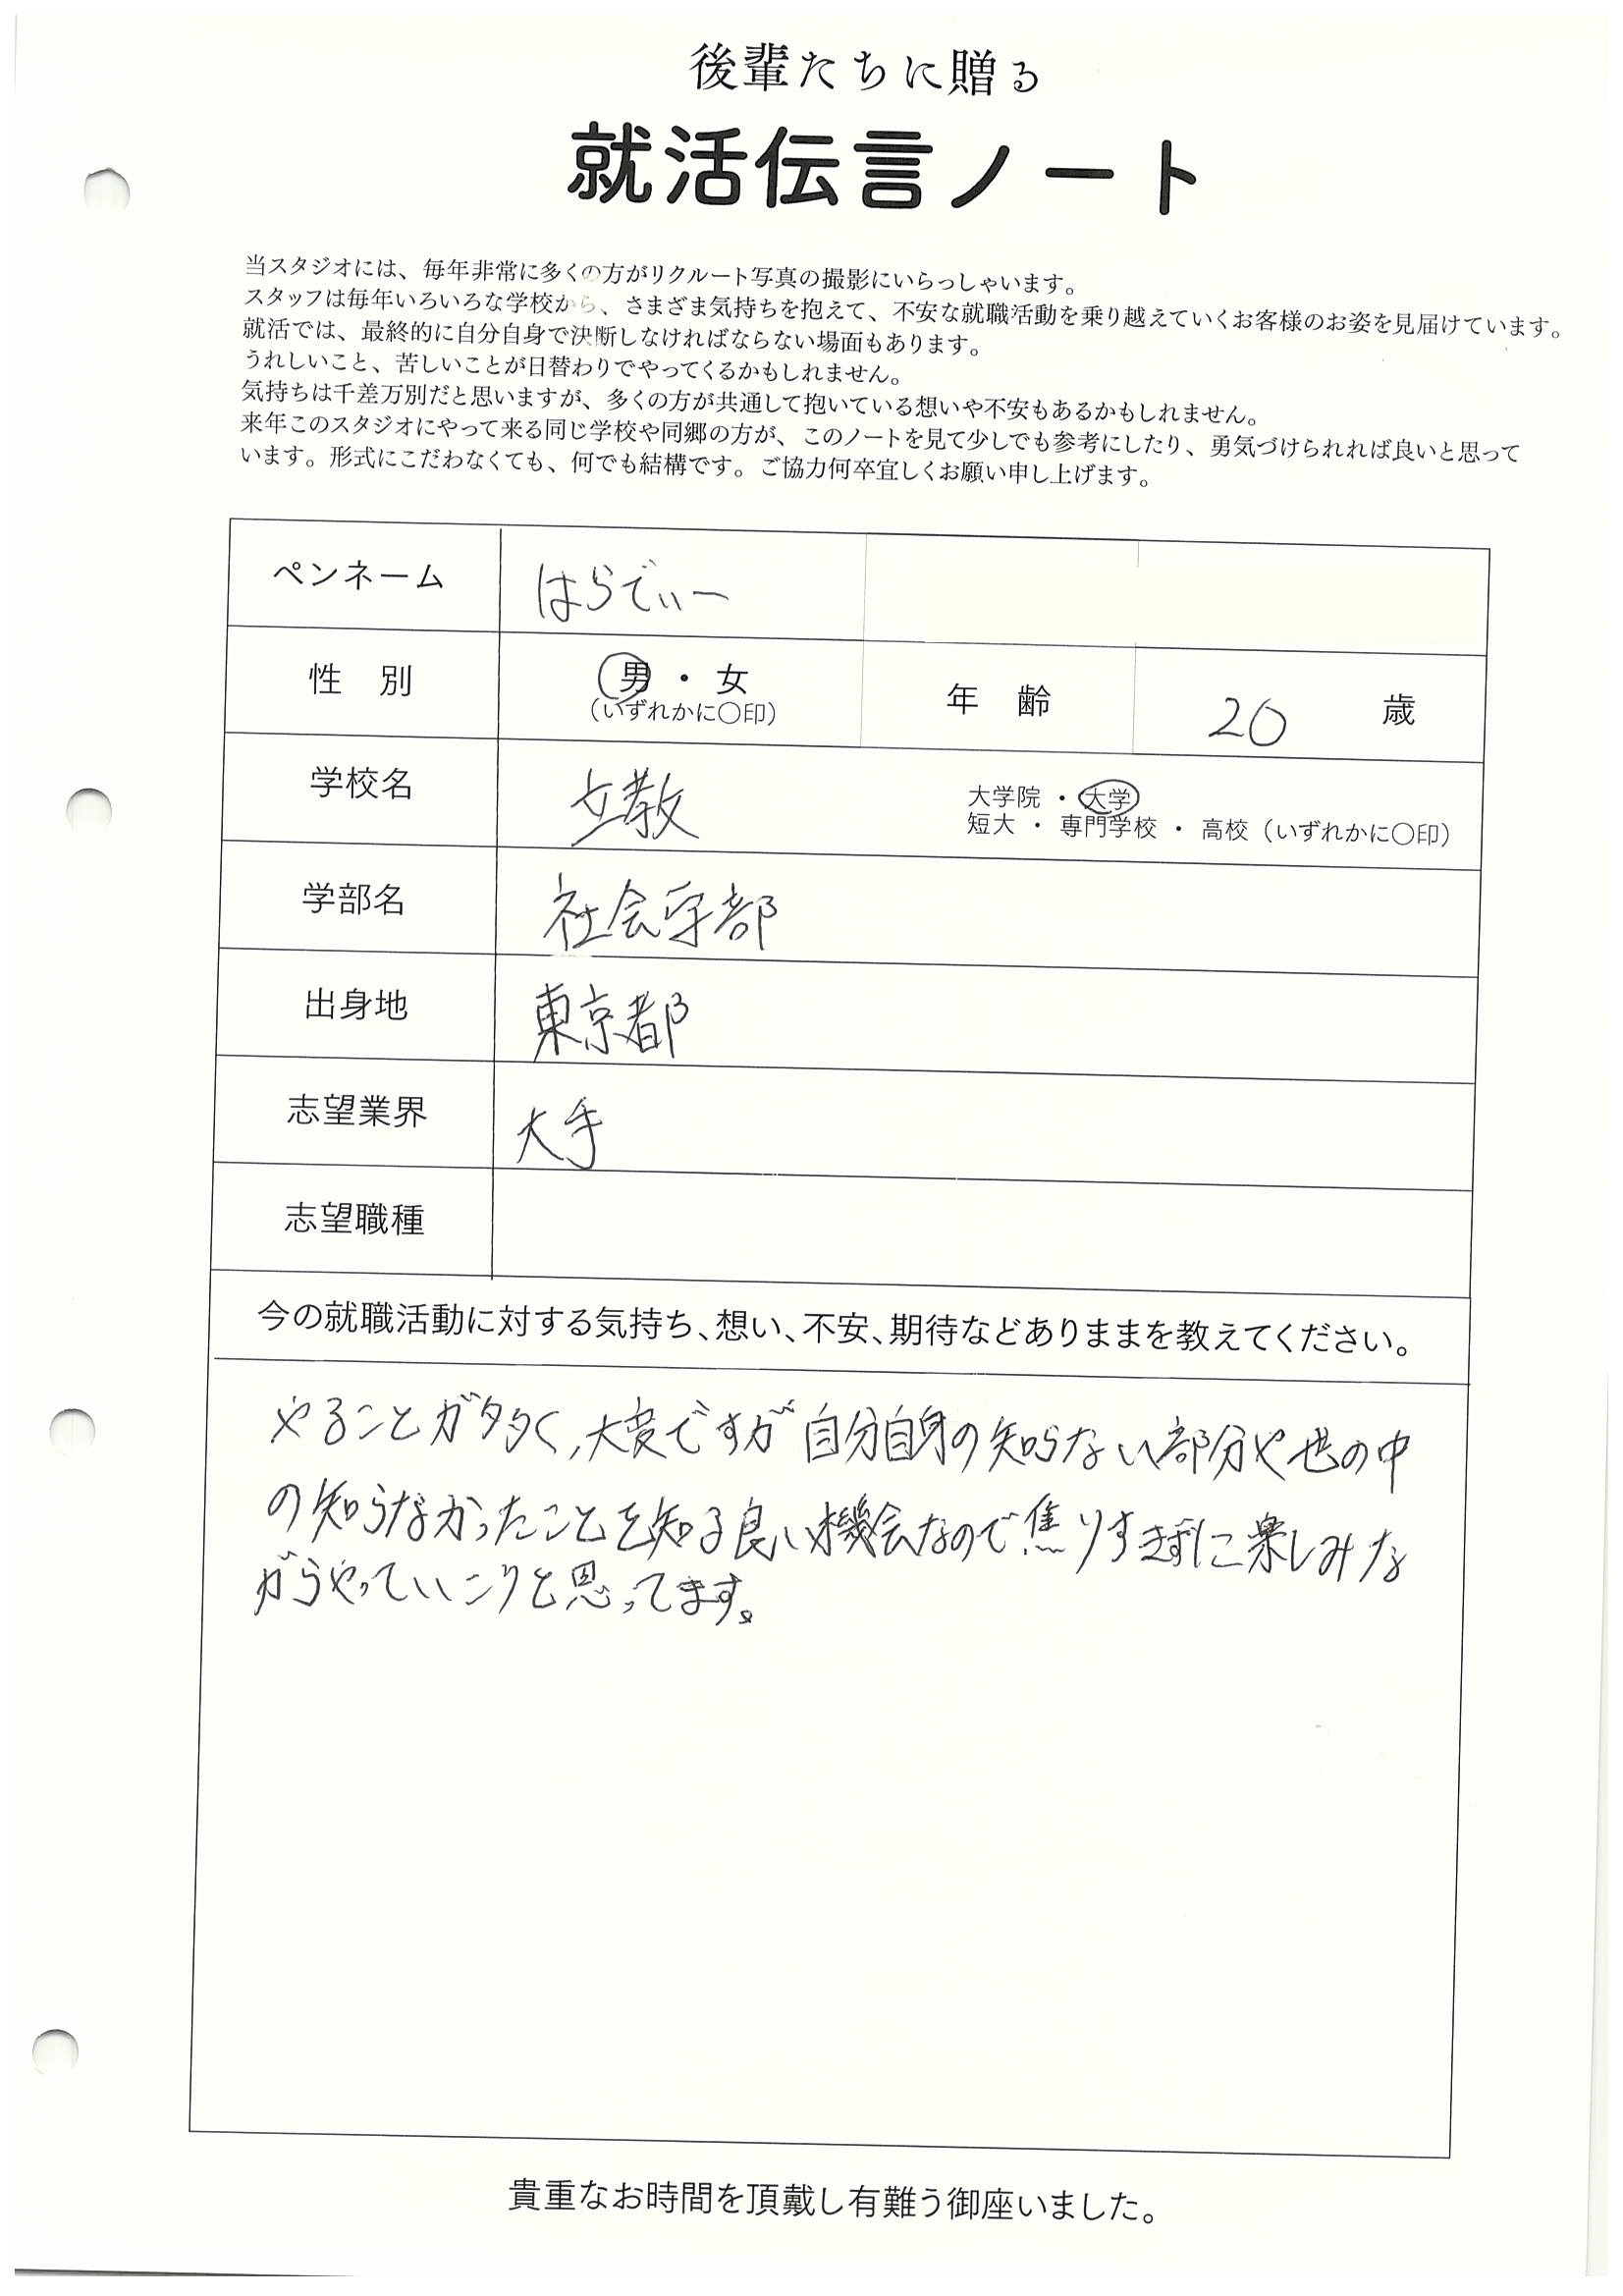 後輩たちに贈る
就活伝言ノート
当スタジオには、毎年非常に多くの方がリクルート写真の撮影にいらっしゃいます。
スタッフは毎年いろいろな学校から、さまざま気持ちを抱えて、不安な就職活動を乗り越えていくお客様のお姿を見届けています。
就活では、最終的に自分自身で決断しなければならない場面もあります。
うれしいこと、苦しいことが日替わりでやってくるかもしれません。
気持ちは千差万別だと思いますが、多くの方が共通して抱いている想いや不安もあるかもしれません。
来年このスタジオにやって来る同じ学校や同郷の方が、このノートを見て少しでも参考にしたり、勇気づけられれば良いと思って
います。形式にこだわなくても、何でも結構です。ご協力何卒宜しくお願い申し上げます。
ペンネーム はらでぃー
性 別 男 ・ 女 年 齢 20 歳
(いずれかに〇印)
学校名 立教 大学院 ・ 大学
短大 ・ 専門学校 ・ 高校 (いずれかに〇印)
学部名 社会学部
出身地 東京都
志望業界 大手
志望職種
今の就職活動に対する気持ち、想い、不安、期待などありままを教えてください。
やることが多く、大変ですが自分自身の知らない部分や世の中
の知らなかったことを知る良い機会なので焦りすぎずに楽しみな
がらやっていこうと思ってます。
貴重なお時間を頂戴し有難う御座いました。